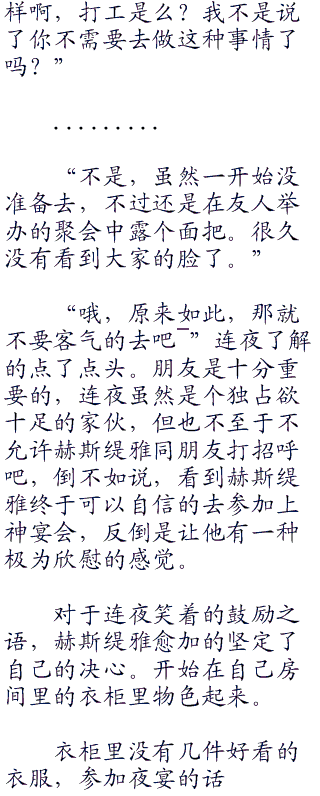 样啊，打工是么？我不是说
了你不需要去做这种事情了
吗？”
．．．．．．．．．
“不是，虽然一开始没
准备去，不过还是在友人举
办的聚会中露个面把。很久
没有看到大家的脸了。”
“哦，原来如此，那就
不要客气的去吧¯”连夜了解
的点了点头。朋友是十分重
要的，连夜虽然是个独占欲
十足的家伙，但也不至于不
允许赫斯缇雅同朋友打招呼
吧，倒不如说，看到赫斯缇
雅终于可以自信的去参加上
神宴会，反倒是让他有一种
极为欣慰的感觉。
对于连夜笑着的鼓励之
语，赫斯缇雅愈加的坚定了
自己的决心。开始在自己房
间里的衣柜里物色起来。
衣柜里没有几件好看的
衣服，参加夜宴的话